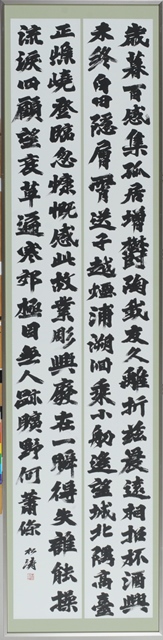 歳暮百感集孤居增鬱陶故友久離析茲晨遠相招杯酒興
未終白日隱層霄送子越煙浦溯洄乘小舠遙望城北隅高臺
正嶕嶢登臨忽慷慨感此故業彫興廢在一瞬得失誰能操
流涙回顧望衰草遍寒郊極目無人跡曠野何蕭條 松濤